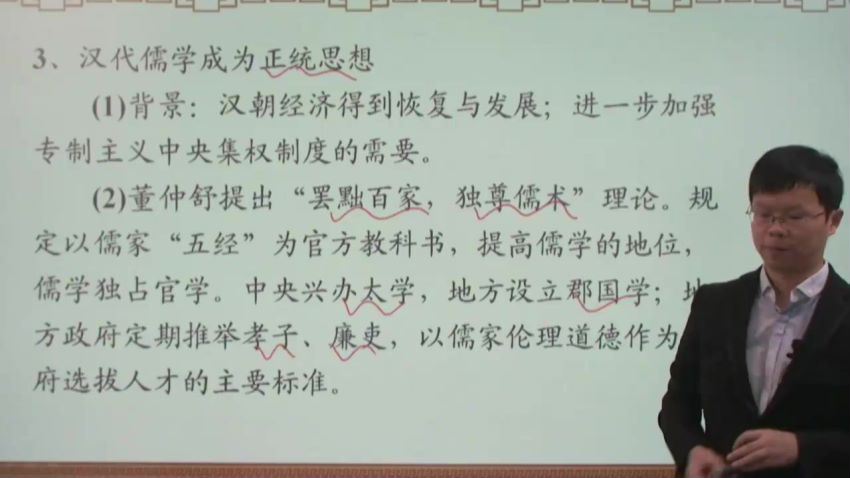 3、汉代儒学成为正统思想
(1)背景：汉朝经济得到恢复与发展；进一步加强
专制主义中央集权制度的需要。
(2)董仲舒提出“罢黜百家，独尊儒术”理论。规
定以儒家“五经”为官方教科书，提高儒学的地位，
儒学独占官学。中央兴办太学，地方设立郡国学；
方政府定期推举孝子、廉吏，以儒家伦理道德作为
府选拔人才的主要标准。